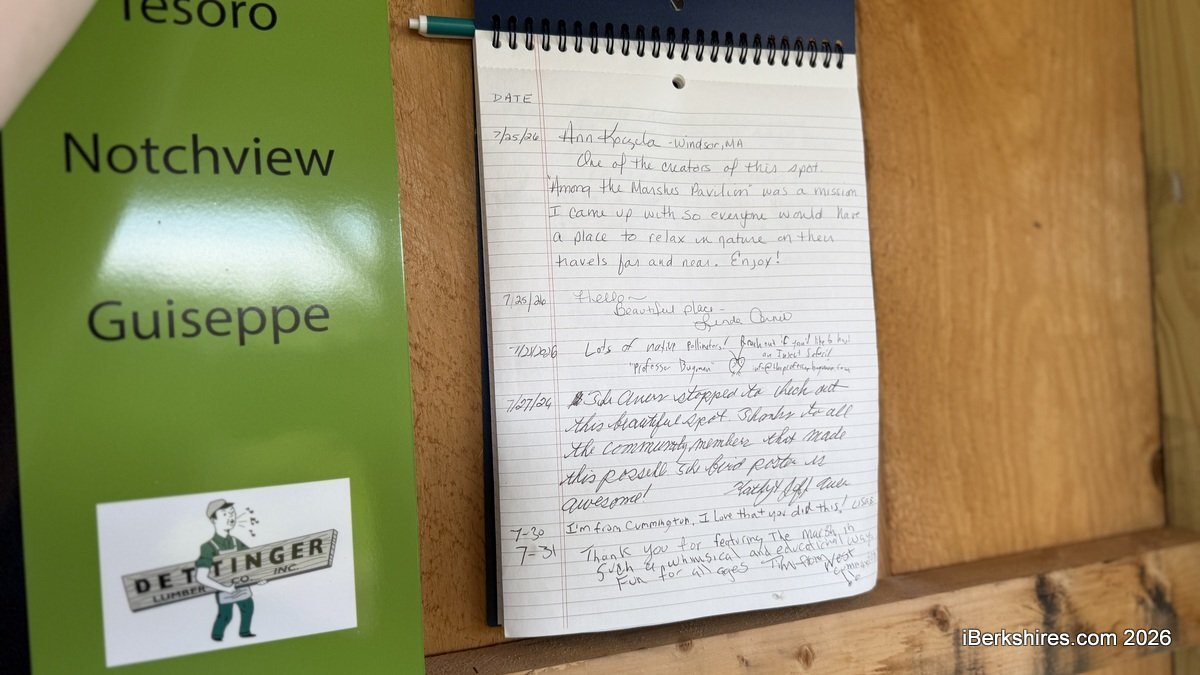 Tesoro
Notchview
Guiseppe
DETTINGER
LUMBER CO. INC.
DATE
7/25/26 Ann Koczela - Windsor, MA
One of the creators of this spot.
"Among the Marshes Pavilion" was a mission
I came up with so everyone would have
a place to relax in nature on their
travels far and near. Enjoy!
7/25/26 Hello~
Beautiful place -
Linda
Lots of native pollinators! Reach out if you'd like to
"Professor Bugman" an Insect Safari!
7/27/26 The Auers stopped to check out
this beautiful spot. Thanks to all
the community members that made
this possible The bird poster is
awesome! Kathy & Jeff Auer
7-30 I'm from Cummington. I Love that you did this!
7-31 Thank you for featuring The Marsh in
Such a whimsical and educational way.
Fun for all ages Tim from West
iBerkshires.com 2026